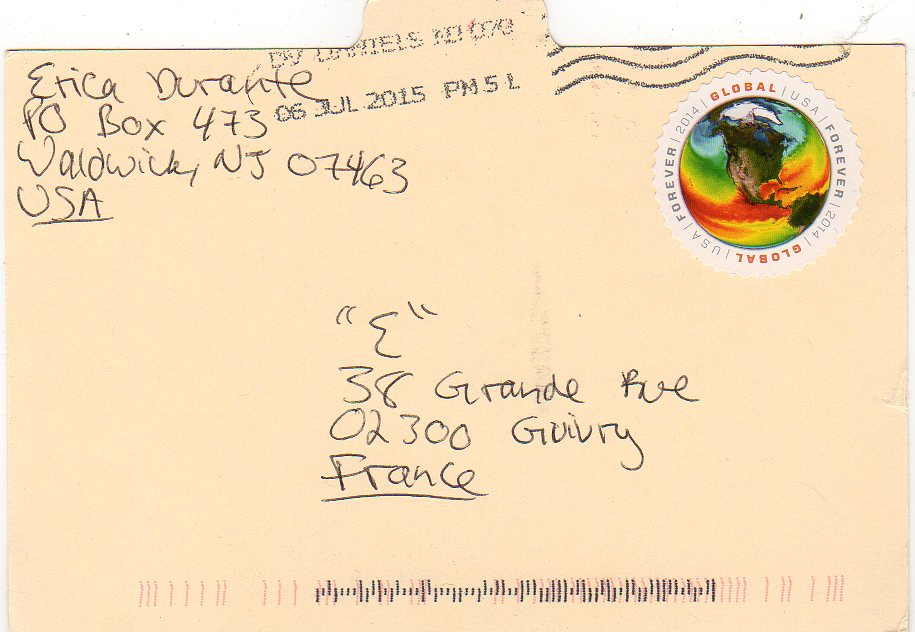 DV DANIELS NJ 070
06 JUL 2015 PM 5 L
Erica Durante
PO Box 473
Waldwick, NJ 07463
USA
GLOBAL | USA | FOREVER | 2014 | GLOBAL | USA | FOREVER | 2014 |
"E"
38 Grande Rue
02300 Guivry
France